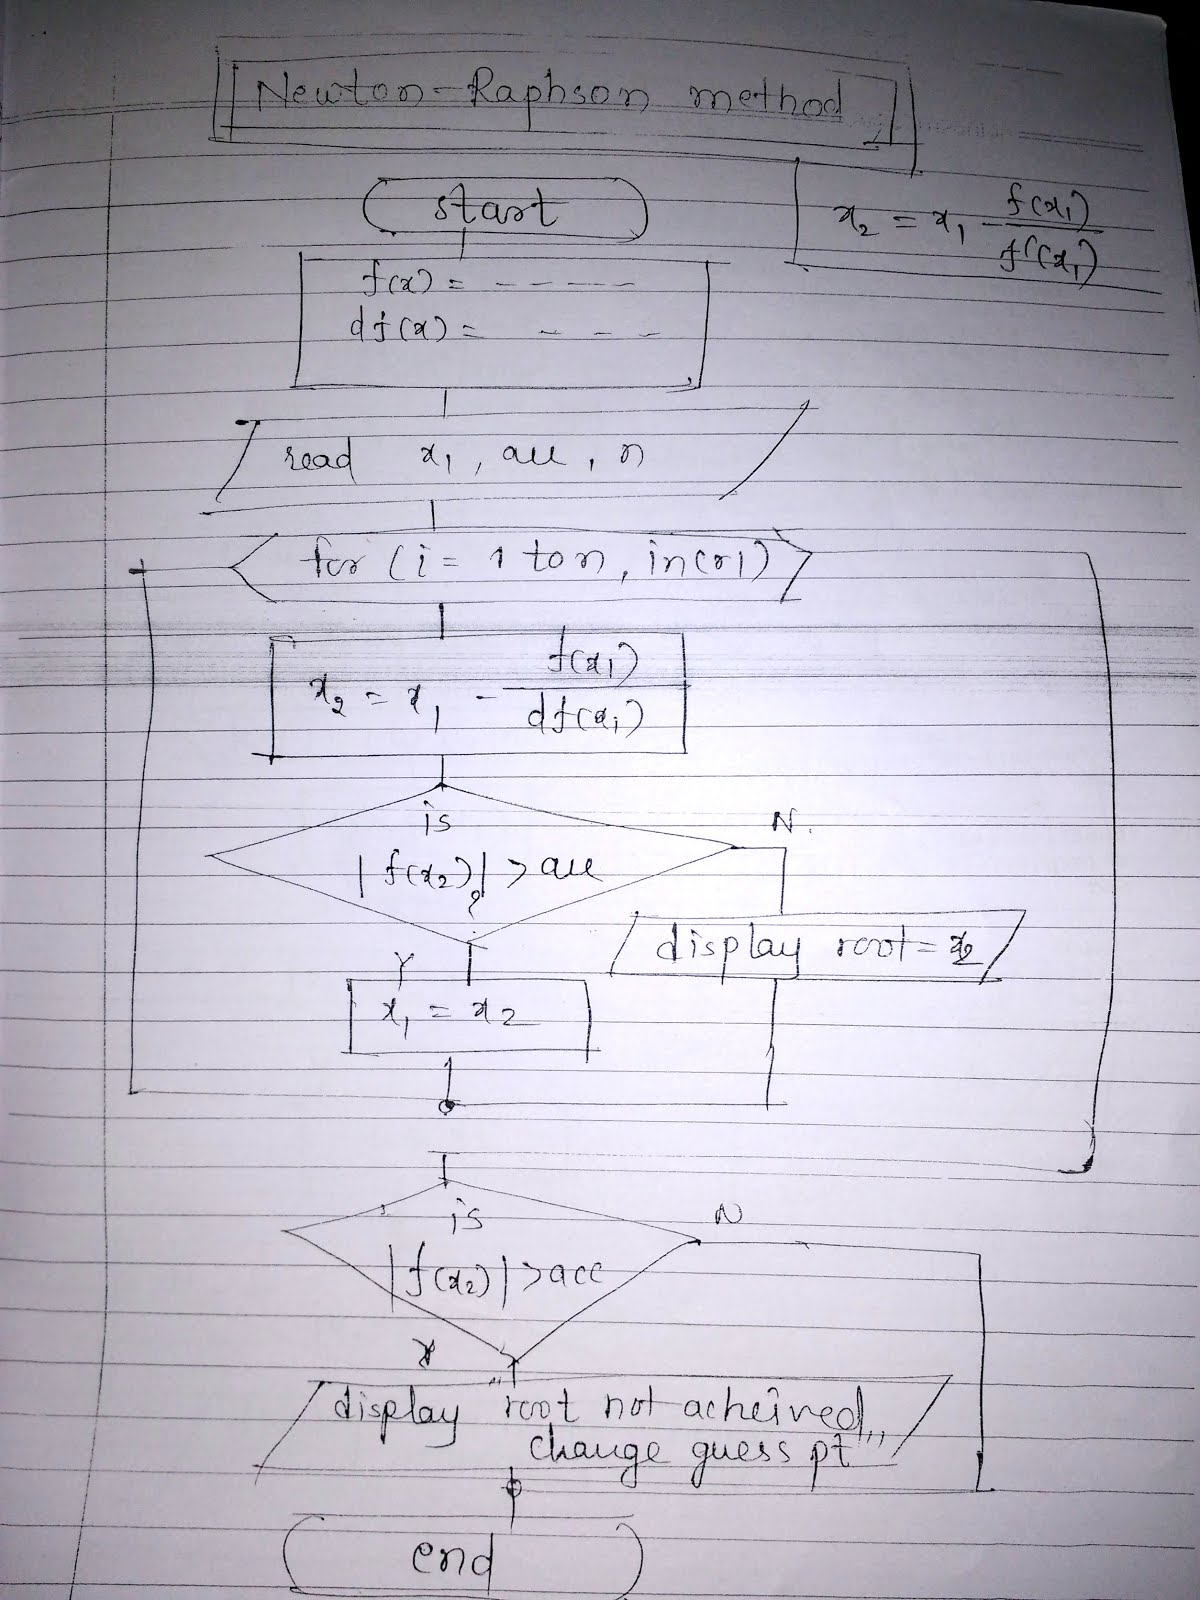 Newton-Raphson method
start
x₂ = x₁ - f(x₁)/f'(x₁)
f(x) = - - - - -
df(x) = - - -
read x₁, acc, n
for (i = 1 to n, incr 1)
x₂ = x₁ - f(x₁)/df(x₁)
is
N.
|f(x₂)| > acc
?
display root = x₂
Y
x₁ = x₂
is
N
|f(x₂)| > acc
Y
display "root not acheived
change guess pt"
end